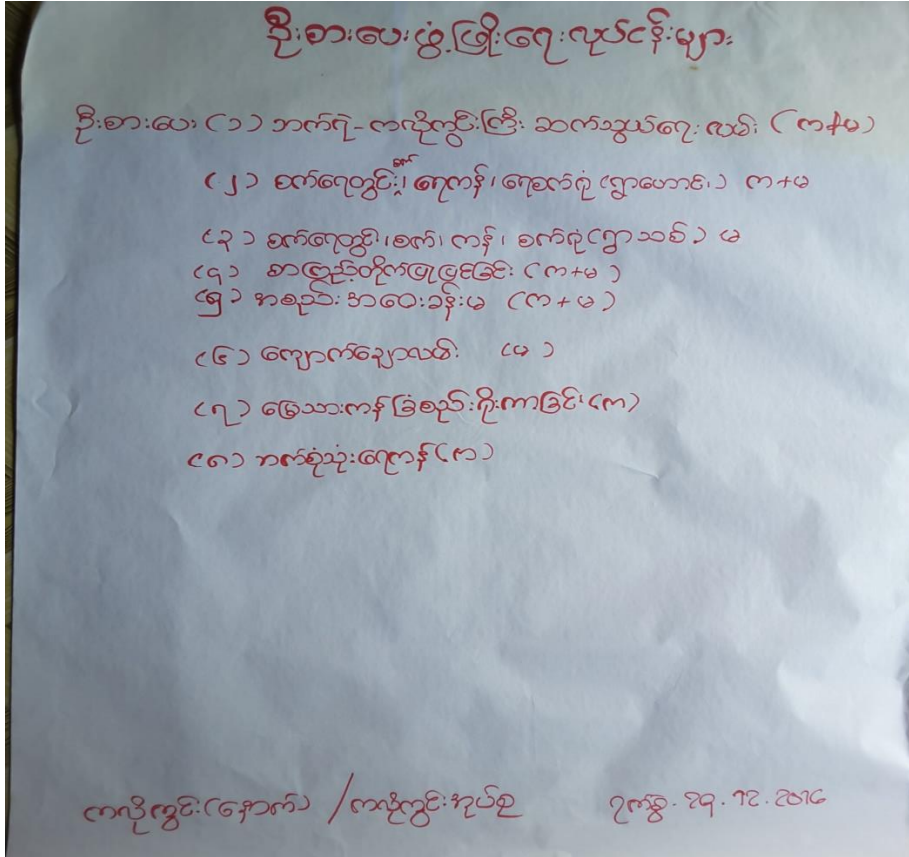 ဦးစားပေးဖွံ့ဖြိုးရေးလုပ်ငန်းများ
ဦးစားပေး (၁) ဘက်ရဲ-ကလိုကွင်းကြီး ဆက်သွယ်ရေးလမ်း (က+မ)
(၂) စက်ရေတွင်း၊ စက် ရေကန်၊ ရေစက်ရုံ (ရွာဟောင်း) က+မ
(၃) စက်ရေတွင်း၊ စက်၊ ကန်၊ စက်ရုံ (ရွာသစ်) မ
(၄) စာကြည့်တိုက်ပြုပြင်ခြင်း (က+မ)
(၅) အစည်းအဝေးခန်းမ (က+မ)
(၆) ကျောက်ချောလမ်း (မ)
(၇) မြေသားကန် ခြံစည်းရိုးကာခြင်း (က)
(၈) ဘက်စုံသုံးရေကန် (က)
ကလိုကွင်း(နောက်) / ကလိုကွင်းအုပ်စု ရက်စွဲ. 29.12.2016